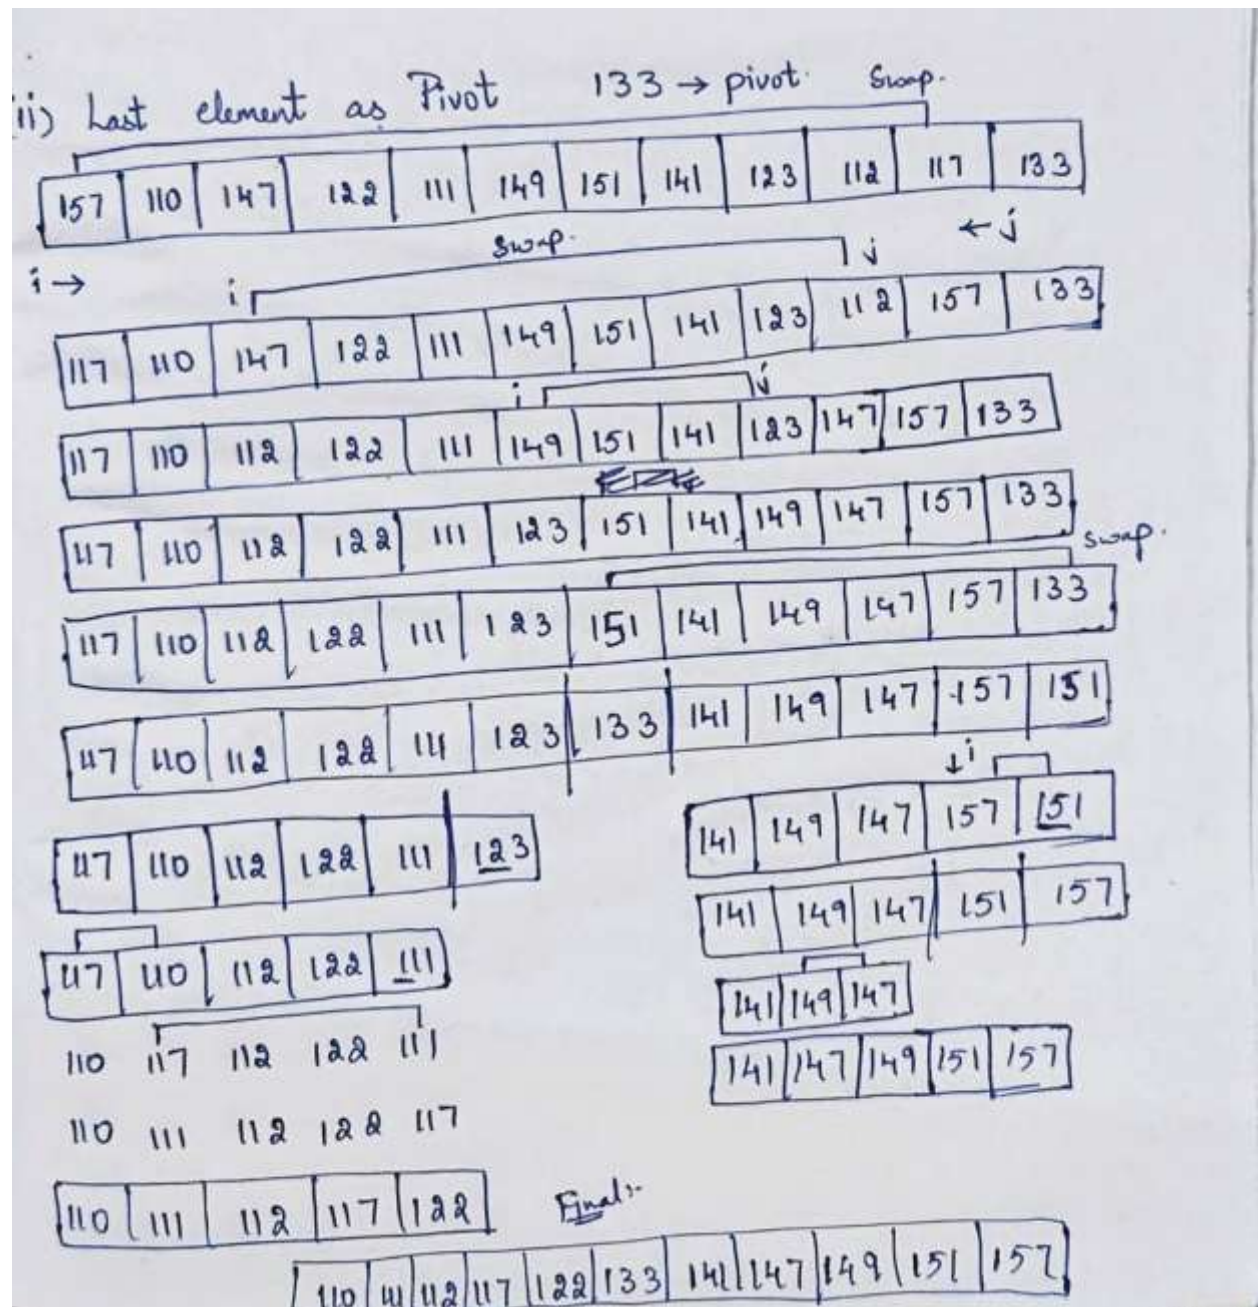 ii) Last element as Pivot 133 → pivot. Swap.
157 110 147 122 111 149 151 141 123 112 117 133
i → i swap. j ← j
117 110 147 122 111 149 151 141 123 112 157 133
i j
117 110 112 122 111 149 151 141 123 147 157 133
117 110 112 122 111 123 151 141 149 147 157 133
swap.
117 110 112 122 111 123 151 141 149 147 157 133
117 110 112 122 111 123 133 141 149 147 157 151
↓ i
117 110 112 122 111 123
141 149 147 157 151
141 149 147 151 157
117 110 112 122 111
141 149 147
110 117 112 122 111
141 147 149 151 157
110 111 112 122 117
110 111 112 117 122
Final:-
110 111 112 117 122 133 141 147 149 151 157